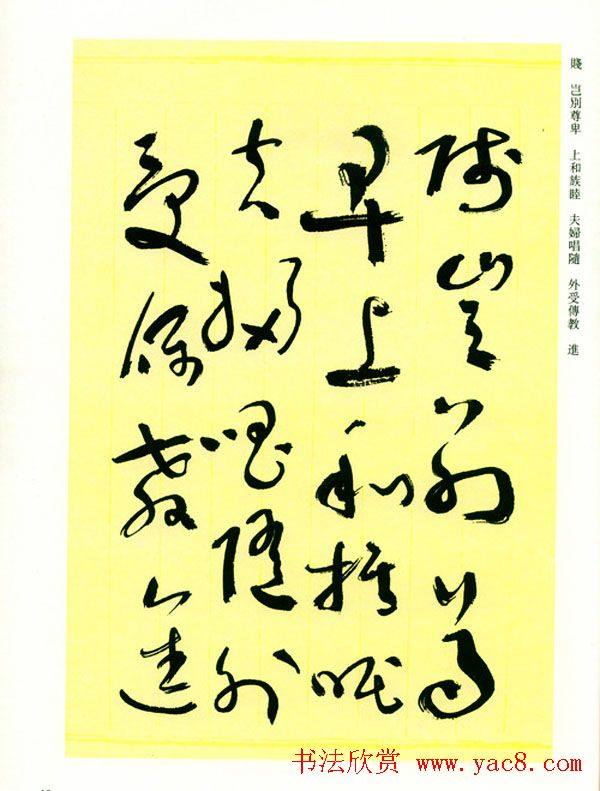 賤 豈別尊卑 上和族睦 夫婦唱隨 外受傳教 進
賤豈別尊
卑上和族睦
夫婦唱隨外
受傳教進
书法欣赏 www.yac8.com